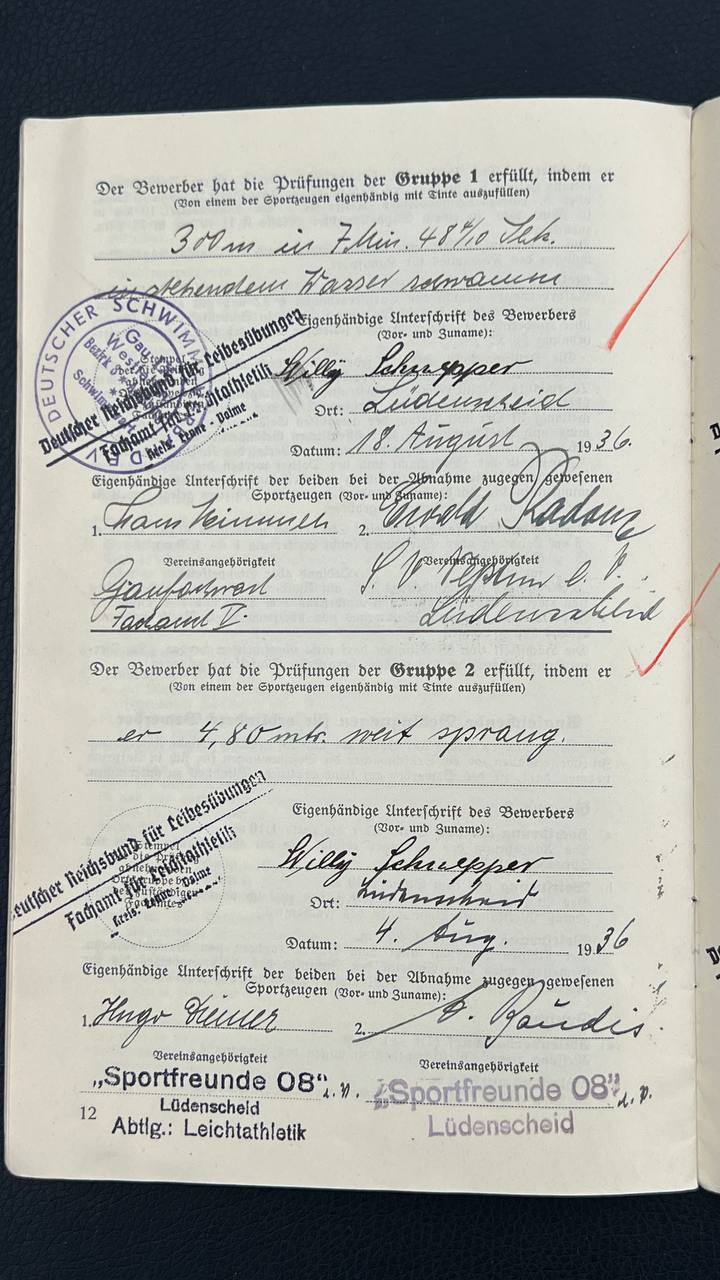 Der Bewerber hat die Prüfungen der Gruppe 1 erfüllt, indem er
(Von einem der Sportzeugen eigenhändig mit Tinte auszufüllen)
300 m in 7 Min. 48 4/10 Sek.
in stehendem Wasser schwamm
DEUTSCHER SCHWIMM
Gau
West
Bezirk
Deutscher Reichsbund für Leibesübungen
Fachamt für Leichtathletik
Kreis: Lenne - Volme
Eigenhändige Unterschrift des Bewerbers
(Vor- und Zuname):
Willy Schnepper
Ort: Lüdenscheid
Datum: 18. August 1936.
Eigenhändige Unterschrift der beiden bei der Abnahme zugegen gewesenen
Sportzeugen (Vor- und Zuname):
1. Hans 2. Ewald
Vereinsangehörigkeit Vereinsangehörigkeit
S. V. Neptun e. V.
Fachamt V. Lüdenscheid
Der Bewerber hat die Prüfungen der Gruppe 2 erfüllt, indem er
(Von einem der Sportzeugen eigenhändig mit Tinte auszufüllen)
er 4,80 mtr. weit sprang.
Deutscher Reichsbund für Leibesübungen
Fachamt für Leichtathletik
Kreis: Lenne - Volme
Eigenhändige Unterschrift des Bewerbers
(Vor- und Zuname):
Willy Schnepper
Ort: Lüdenscheid
Datum: 4. Aug. 1936
Eigenhändige Unterschrift der beiden bei der Abnahme zugegen gewesenen
Sportzeugen (Vor- und Zuname):
1. Hugo 2.
Vereinsangehörigkeit Vereinsangehörigkeit
„Sportfreunde 08“ e.V. „Sportfreunde 08“ e.V.
Lüdenscheid Lüdenscheid
Abtlg.: Leichtathletik
12